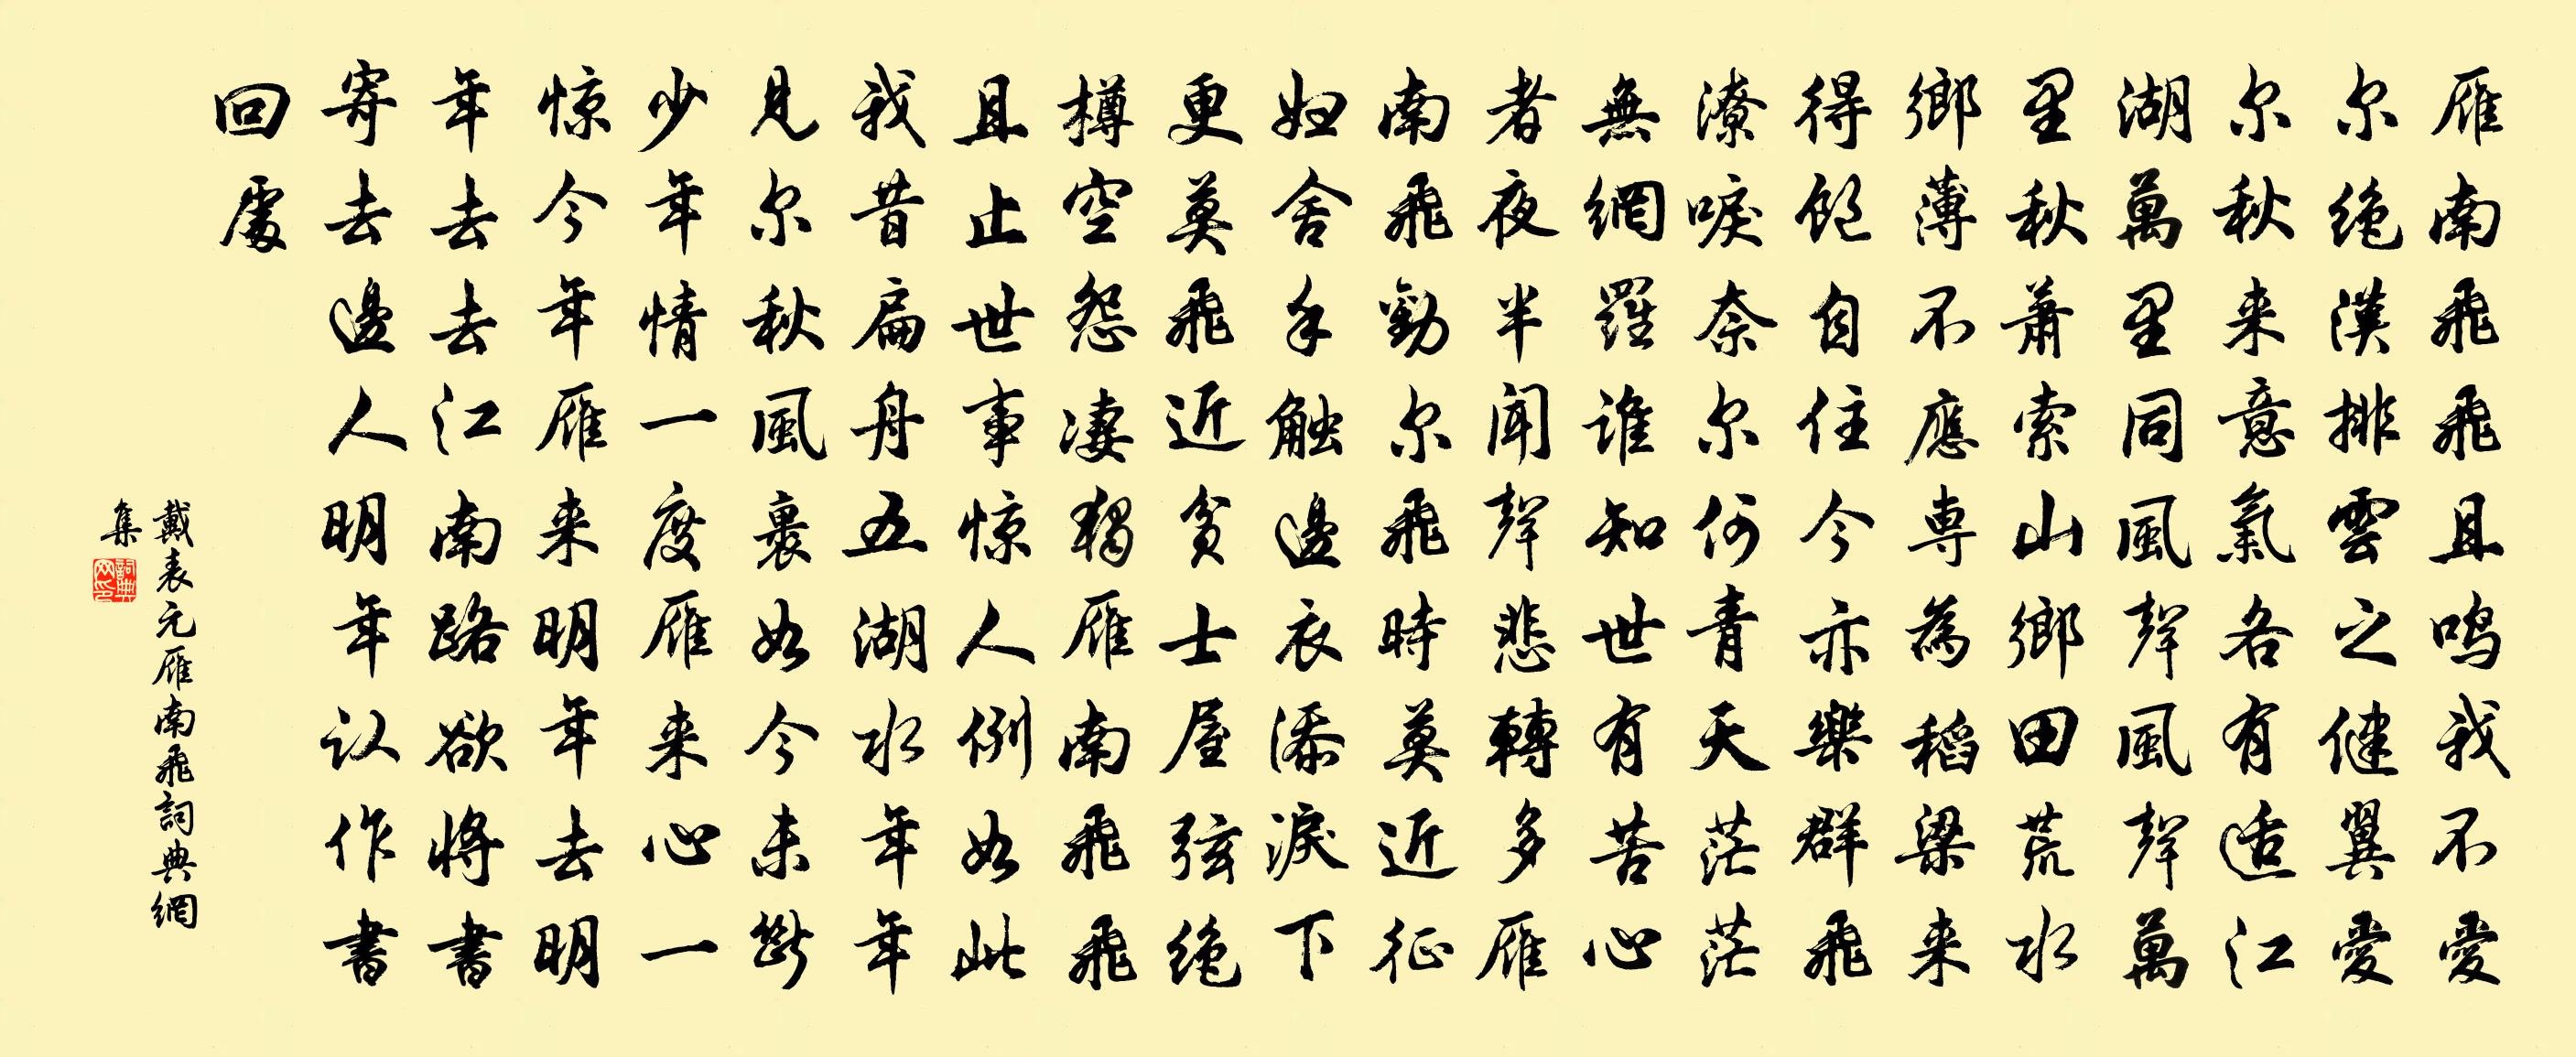 雁南飛飛且鸣我不愛
尔绝漠排雲之健翼愛
尔秋来意氣各有适江
湖萬里同風聲風聲萬
里秋蕭索山鄉田荒水
鄉薄不應専為稻粱来
得飽自住今亦樂群飛
潦唳奈尔何青天茫茫
無網羅谁知世有苦心
者夜半闻聲悲轉多雁
南飛勸尔飛時莫近征
妇舍手触邊衣添淚下
更莫飛近贫士屋弦绝
樽空怨凄獨雁南飛飛
且止世事惊人例如此
我昔扁舟五湖水年年
見尔秋風裏如今未斷
少年情一度雁来心一
惊今年雁来明年去明
年去去江南路欲将書
寄去邊人明年认作書
回處
戴表元雁南飛詞典網
集
詞典網印